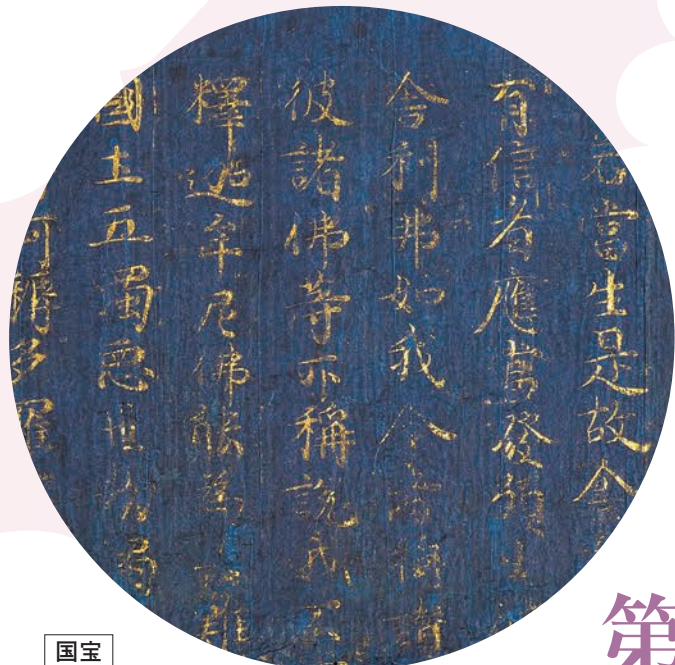 若當生是故舍
有信者應當發願生
舍利弗如我今者稱讚
彼諸佛等亦稱說我不
釋迦牟尼佛能為甚難
國土五濁惡世劫濁
阿耨多羅
国宝
第